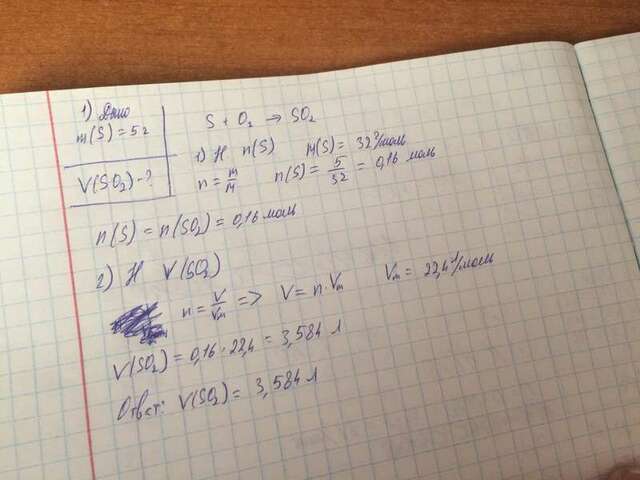 1) Дано
m(S) = 5г
V(SO₂) - ?
S + O₂ → SO₂
1) Н n(S) M(S) = 32 г/моль
n = m/M n(S) = 5/32 = 0,16 моль
n(S) = n(SO₂) = 0,16 моль
2) Н V(SO₂)
n = V/Vm => V = n · Vm Vm = 22,4 л/моль
V(SO₂) = 0,16 · 22,4 = 3,584 л
Ответ: V(SO₂) = 3,584 л